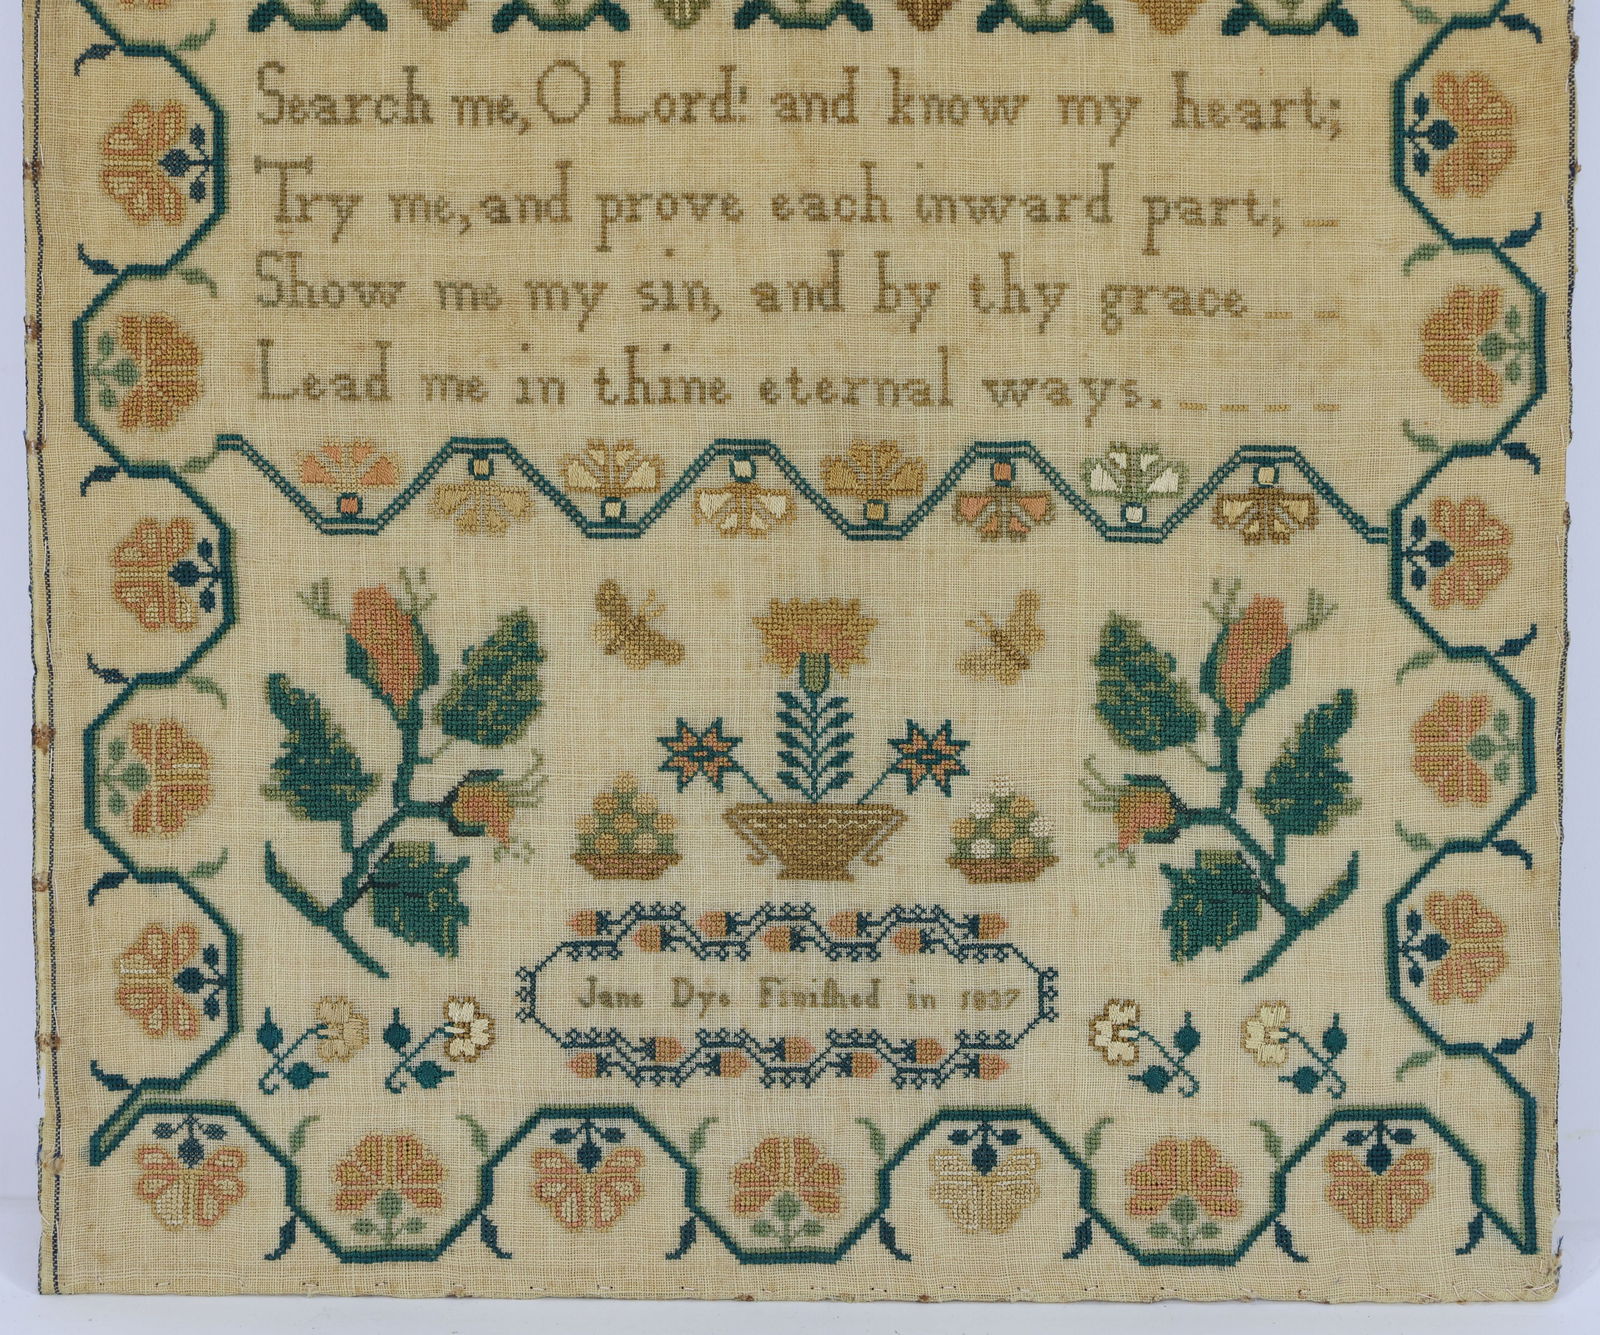 Search me, O Lord! and know my heart;
Try me, and prove each inward part; _
Show me my sin, and by thy grace _ _
Lead me in thine eternal ways. _ _ _ _
Jane Dye Finiſhed in 1837